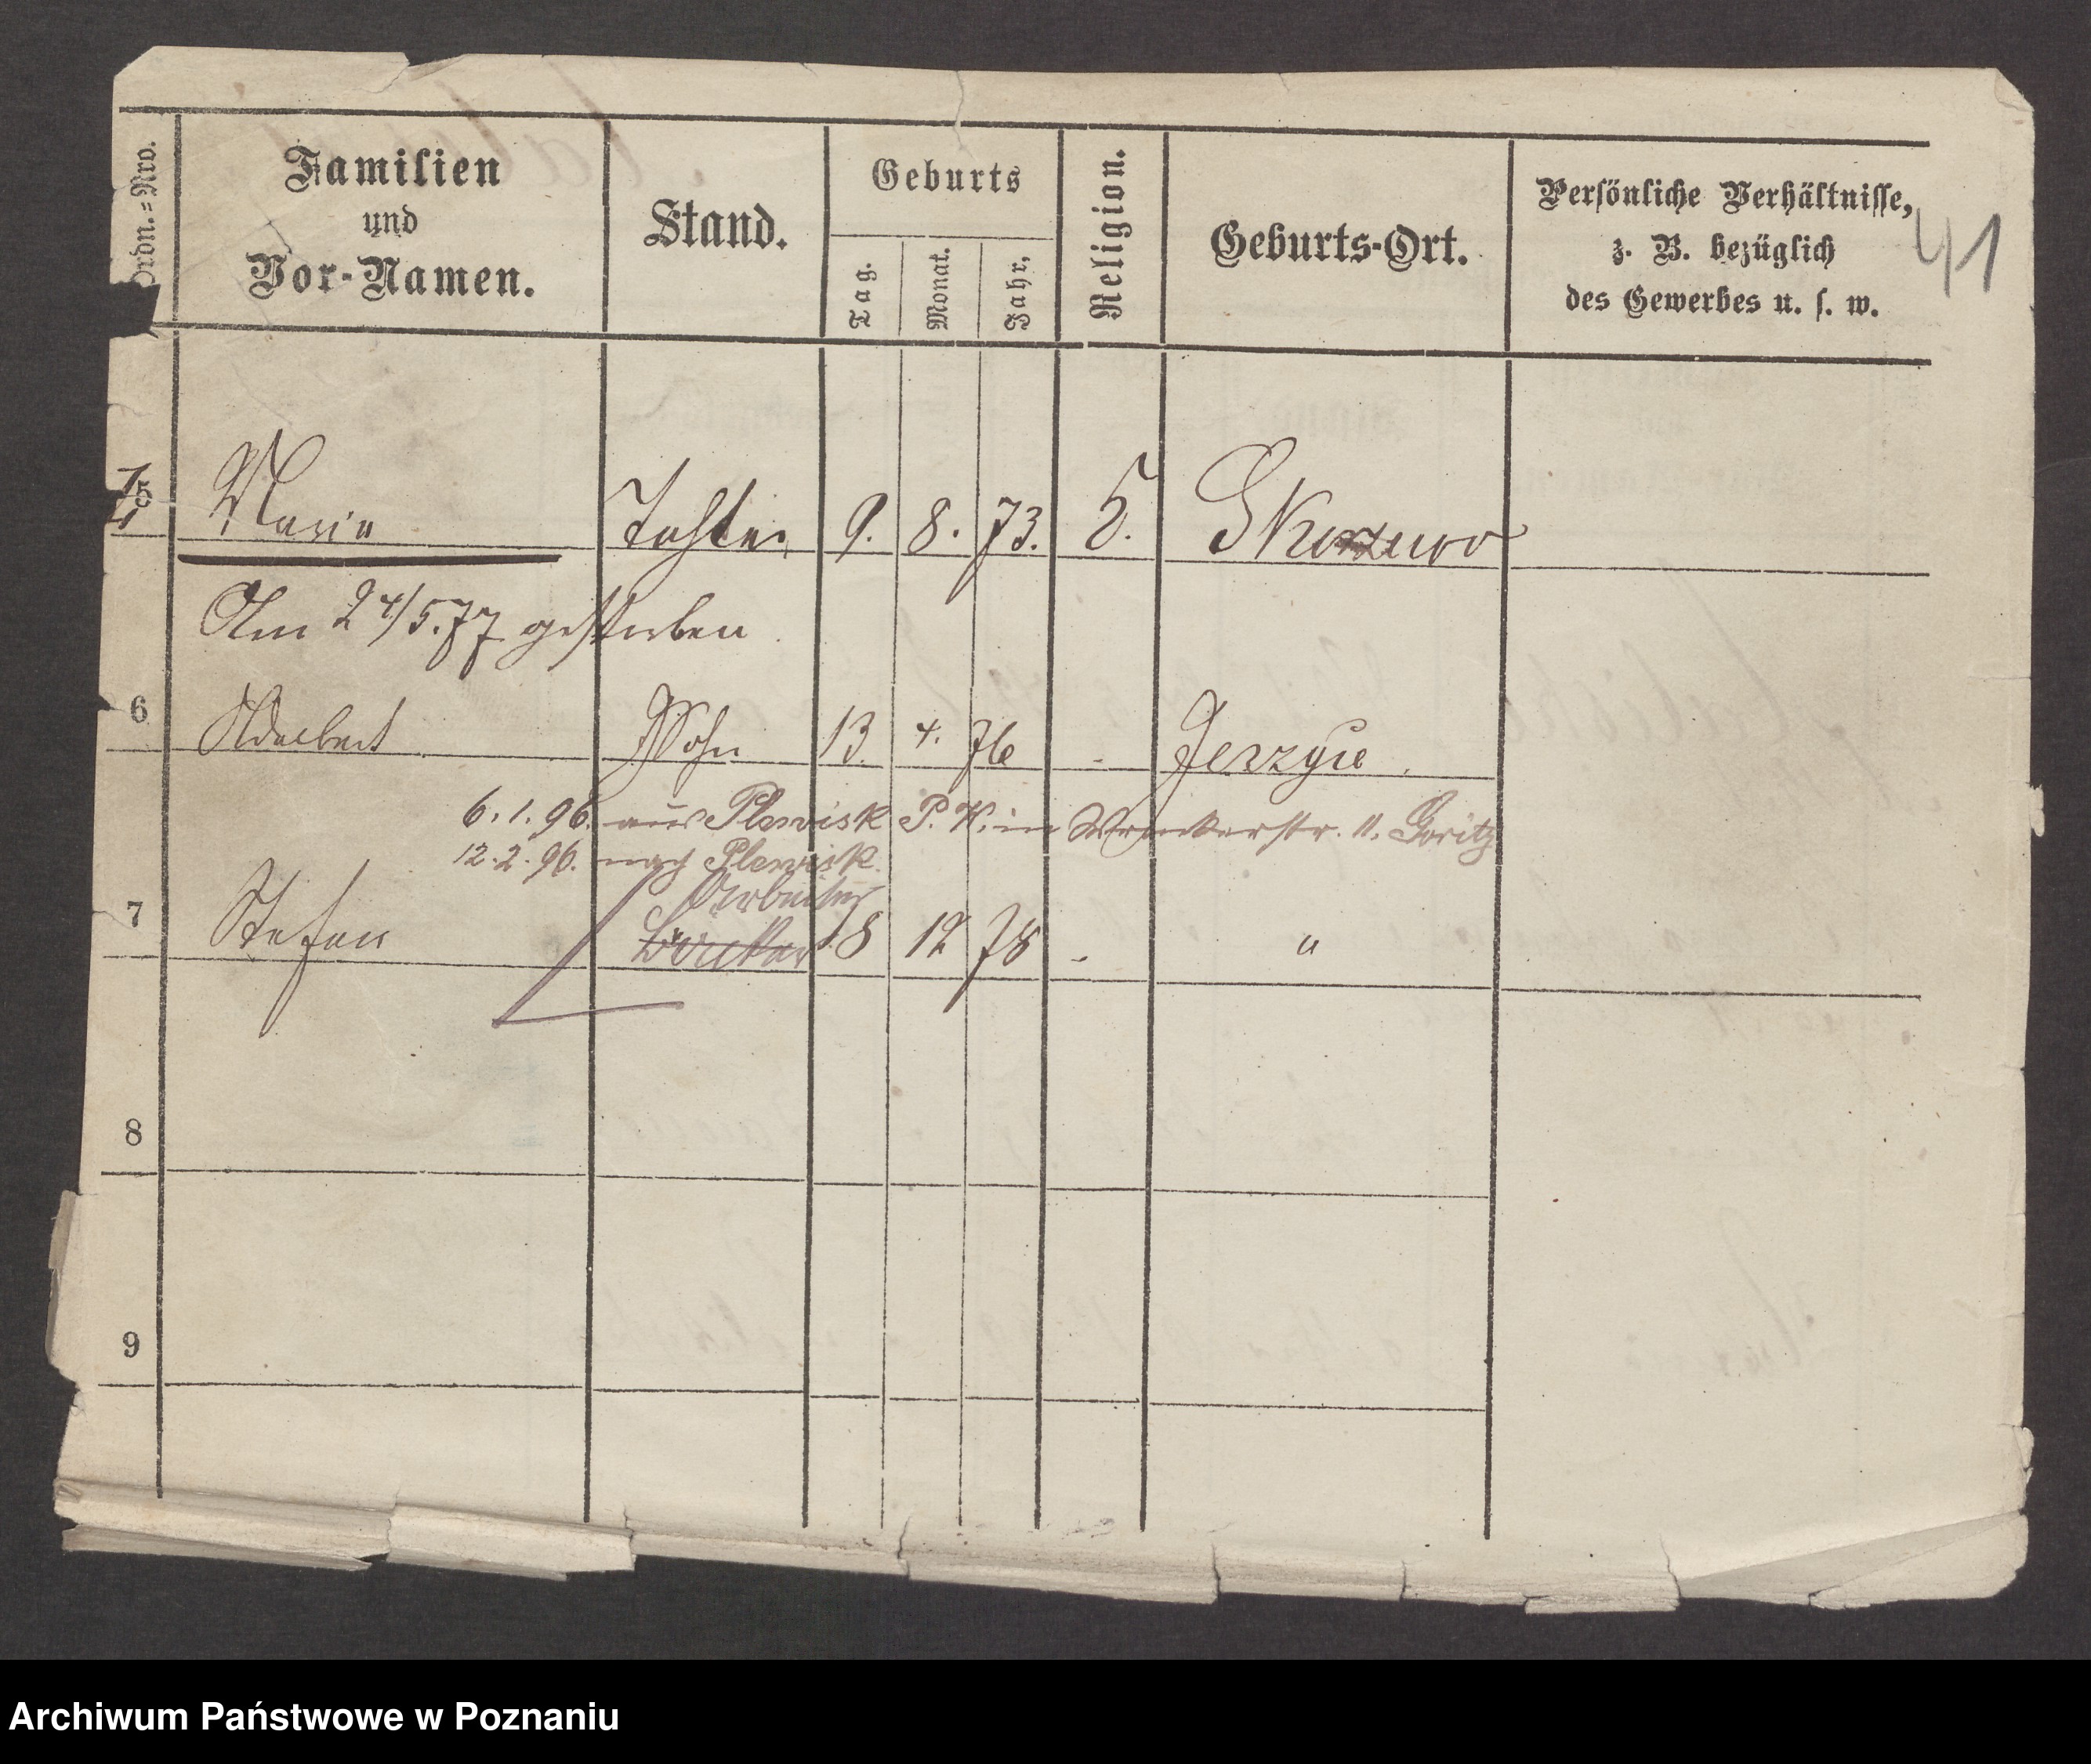 Ordn.=Nro.
Familien
und
Vor-Namen.
Stand.
Geburts
Tag.
Monat.
Jahr.
Religion.
Geburts-Ort.
Persönliche Verhältnisse,
z. B. bezüglich
des Gewerbes u. s. w.
41
5 Maria Tochter 9. 8. 73.
Am 24/5.77 gestorben
6 Adalbert Sohn 13. 4. 76 - Jerzyce
6.1.96. aus Plewisk P. K. in Wronkerstr. 11. Goritz
12.2.96. nach Plewisk.
Arbeiter
7 Stefan 18 12 78 - "
8
9
Archiwum Państwowe w Poznaniu